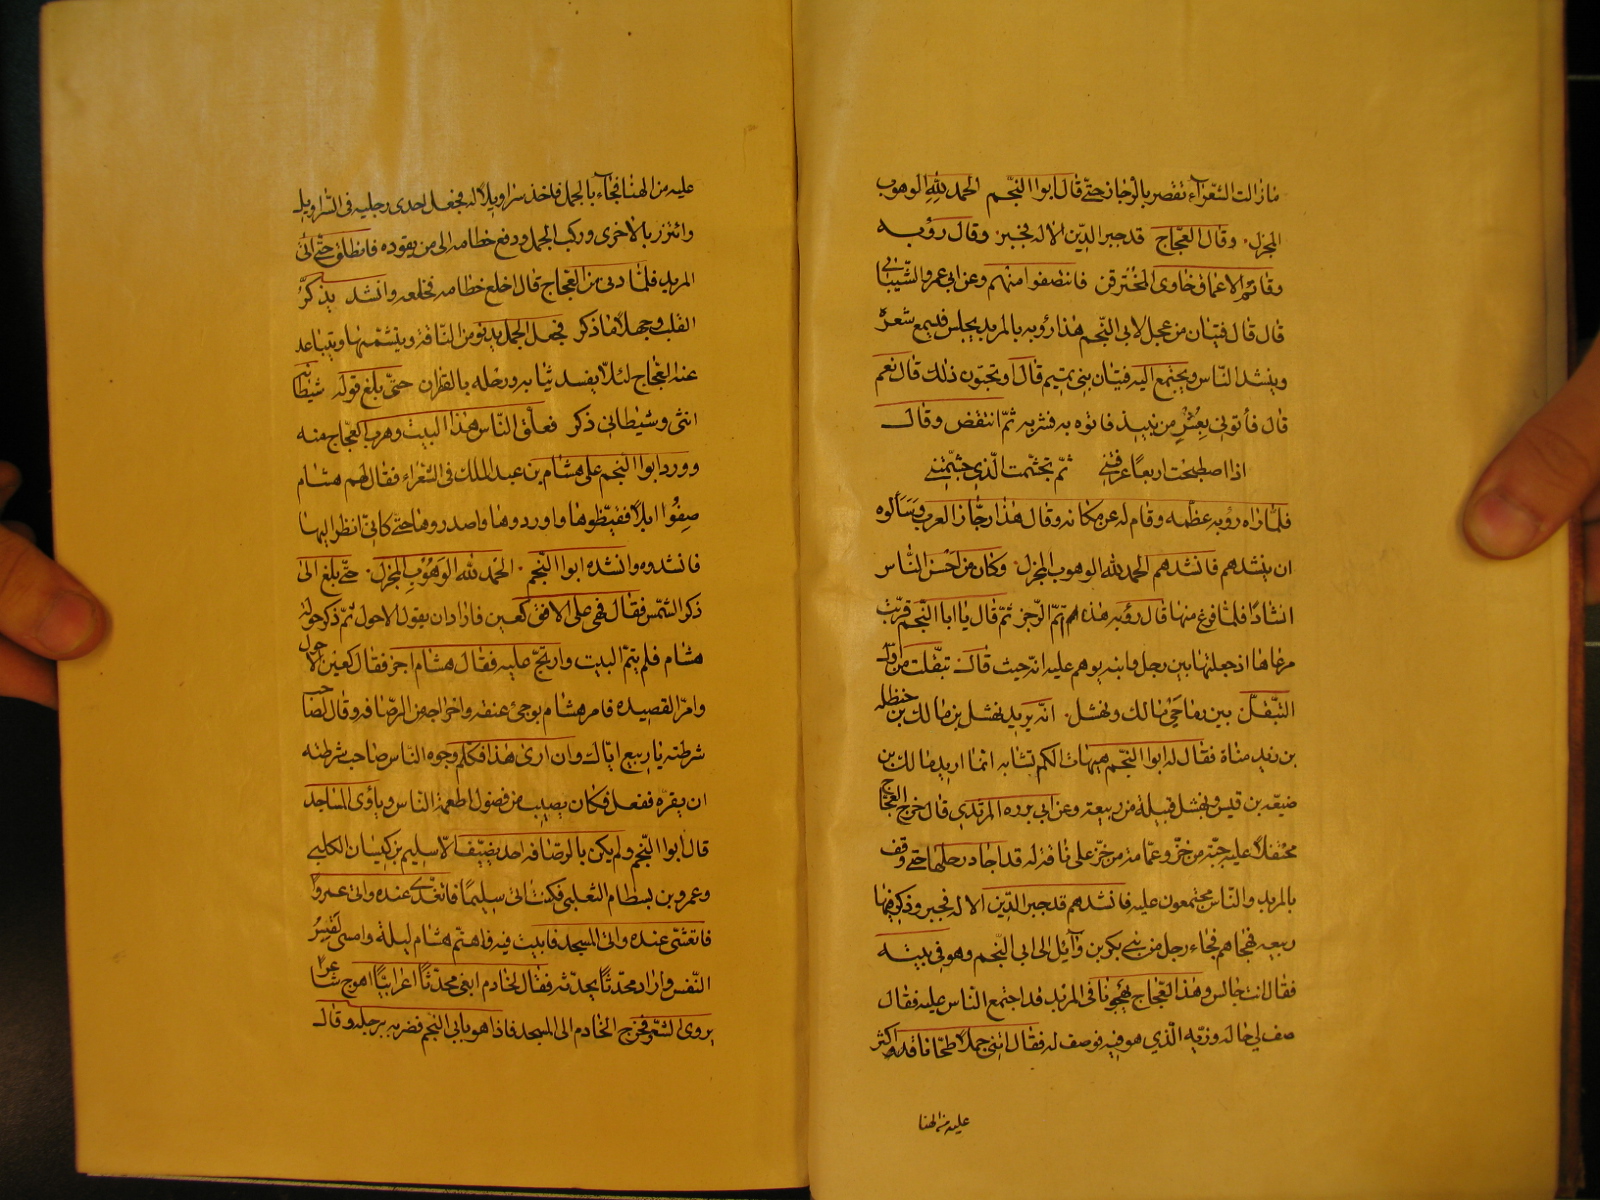 مازالت الشعرآء تقصر بالوجاز حتّى قال ابوا النّجم الحمد للّه الوهوب
المجزل وقال العجّاج قد جبر الدّين الاله فجبر وقال رؤبه
وقاتم الاعماق خاوى المخترقن فانتصفوا منهم وعن ابى عمرو الشّيبانى
قال قال فتيان من عجل لابى النّجم هذا رؤبه بالمربد يجلس فيسمع شعره
وينشد النّاس ويجتمع اليه فتيان بنى تميم قال او تحبّون ذلك قال نعم
قال فأتونى بعُسّ من نبيذ فاتوه به فشربه ثمّ انتفض وقال
اذا اصطبحت اربعاً عرفتنى ثمّ تجشّمت الّذى جشّمتنى
فلمّا راه رؤبه عظّمه وقام له عن مكانه وقال هذا رجّاز العرب وسَألوه
ان ينشدهم فانشدهم الحمد للّه الوهوب المجزل وكان من احسن النّاس
انشادًا فلمّا فرغ منها قال رؤبه هذه امّ الرّجز ثمّ قال يا ابا النّجم قرّبت
مرعاها اذ جعلتها بين رجل وابنه يوهم عليه انّه حيث قال تبقّلت من اوّل
التّبقّل بين رماحى مالك ونهشل انّه يريد نهشل بن مالك بن حنظله
بن زيد مناة فقال له ابوا النّجم هيهات الكمر تشابه انّما اريد مالك بن
ضبيعه بن قيس ونهشل قبيلة من ربيعة وعن ابى برده المرثدى قال خرج العجّاج
محتفلاً عليه جبّه من خزّ وعمّامة من خزّ على ناقة له قد اجاد رحلها حتّى وقف
بالمربد والنّاس مجتمعون عليه فانشدهم قد جبر الدّين الاله فجبر وذكر فيها
ربيعه فهجاهم فجاء رجل من بنى بكر بن وآئل الى ابى النّجم وهو فى بيته
فقال انت جالس وهذا العجّاج يهجونا فى المربد قد اجتمع النّاس عليه فقال
صف لى حاله وزيّه الّذي هو فيه فوصف له فقال ابغنى جملاً طحّانا قد اكثر
عليه من الهنا
عليه من الهنا فجآء بالجمل فاخذ سراويلاً له فجعل احدى رجليه فى السّراويل
وائتزر بالاخرى وركب الجمل ودفع خطامه الى من يقوده فانطلق حتّى اتى
المربد فلمّا دنى من العجاج قال اخلع خطامه فخلعه وانشد يذكّر
القلب وجهلاً ما ذكر فجعل الجمل يدنو من النّاقه ويتشمّمها ويتباعد
عنه العجاج لئلّا يفسد ثيابه ورحله بالقطران حتّى بلغ قوله شيطانه
انثى وشيطانى ذكر فعلق النّاس هذا البيت وهرب العجّاج منه
وورد ابوا النجم على هشام بن عبد الملك فى الشّعراء فقال لهم هشام
صِفُوا ابلاً فقيّظوها واوردوها واصدروها حتّى كانّى انظر اليها
فانشدوه وانشده ابوا النّجم الحمد للّه الوهُوب المجزل حتّى بلغ الى
ذكر الشّمس فقال فهى على الافق كعين فاراد ان يقول الاحول ثمّ ذكر حولة
هشام فلم يتمّ البيت وارتجّ عليه فقال هشام اجز فقال كعين الاحول
وامرّ القصيده فامر هشام بوجئ عنقه واخراجه من الرصافه وقال لصاحب
شرطته يا ربيع ايّاك وان ارى هذا فكلّم وجوه النّاس صاحب شرطته
ان يقرّه ففعل فكان يصيب من فضول اطعمة النّاس ويأوى المساجد
قال ابوا النّجم ولم يكن بالرصّافه احد يضيّف الّا سليم بن كيسان الكلبى
وعمرو بن بسطام الثعلبى فكنت اتى سليمًا فاتغدّى عنده واتى عمروا
فاتعشّى عنده واتى المسجد فابيت فيه فاهتمّ هشام ليلة وامسى لقِسُ
النّفس واراد محدّثاً يحدّثه فقال لخادم ابغى محدثاً اعرابيّاً اهوج شاعرا
يروى الشّعر فخرج الخادم الى المسجد فاذا هو بابى النجم فضربه برجله وقال